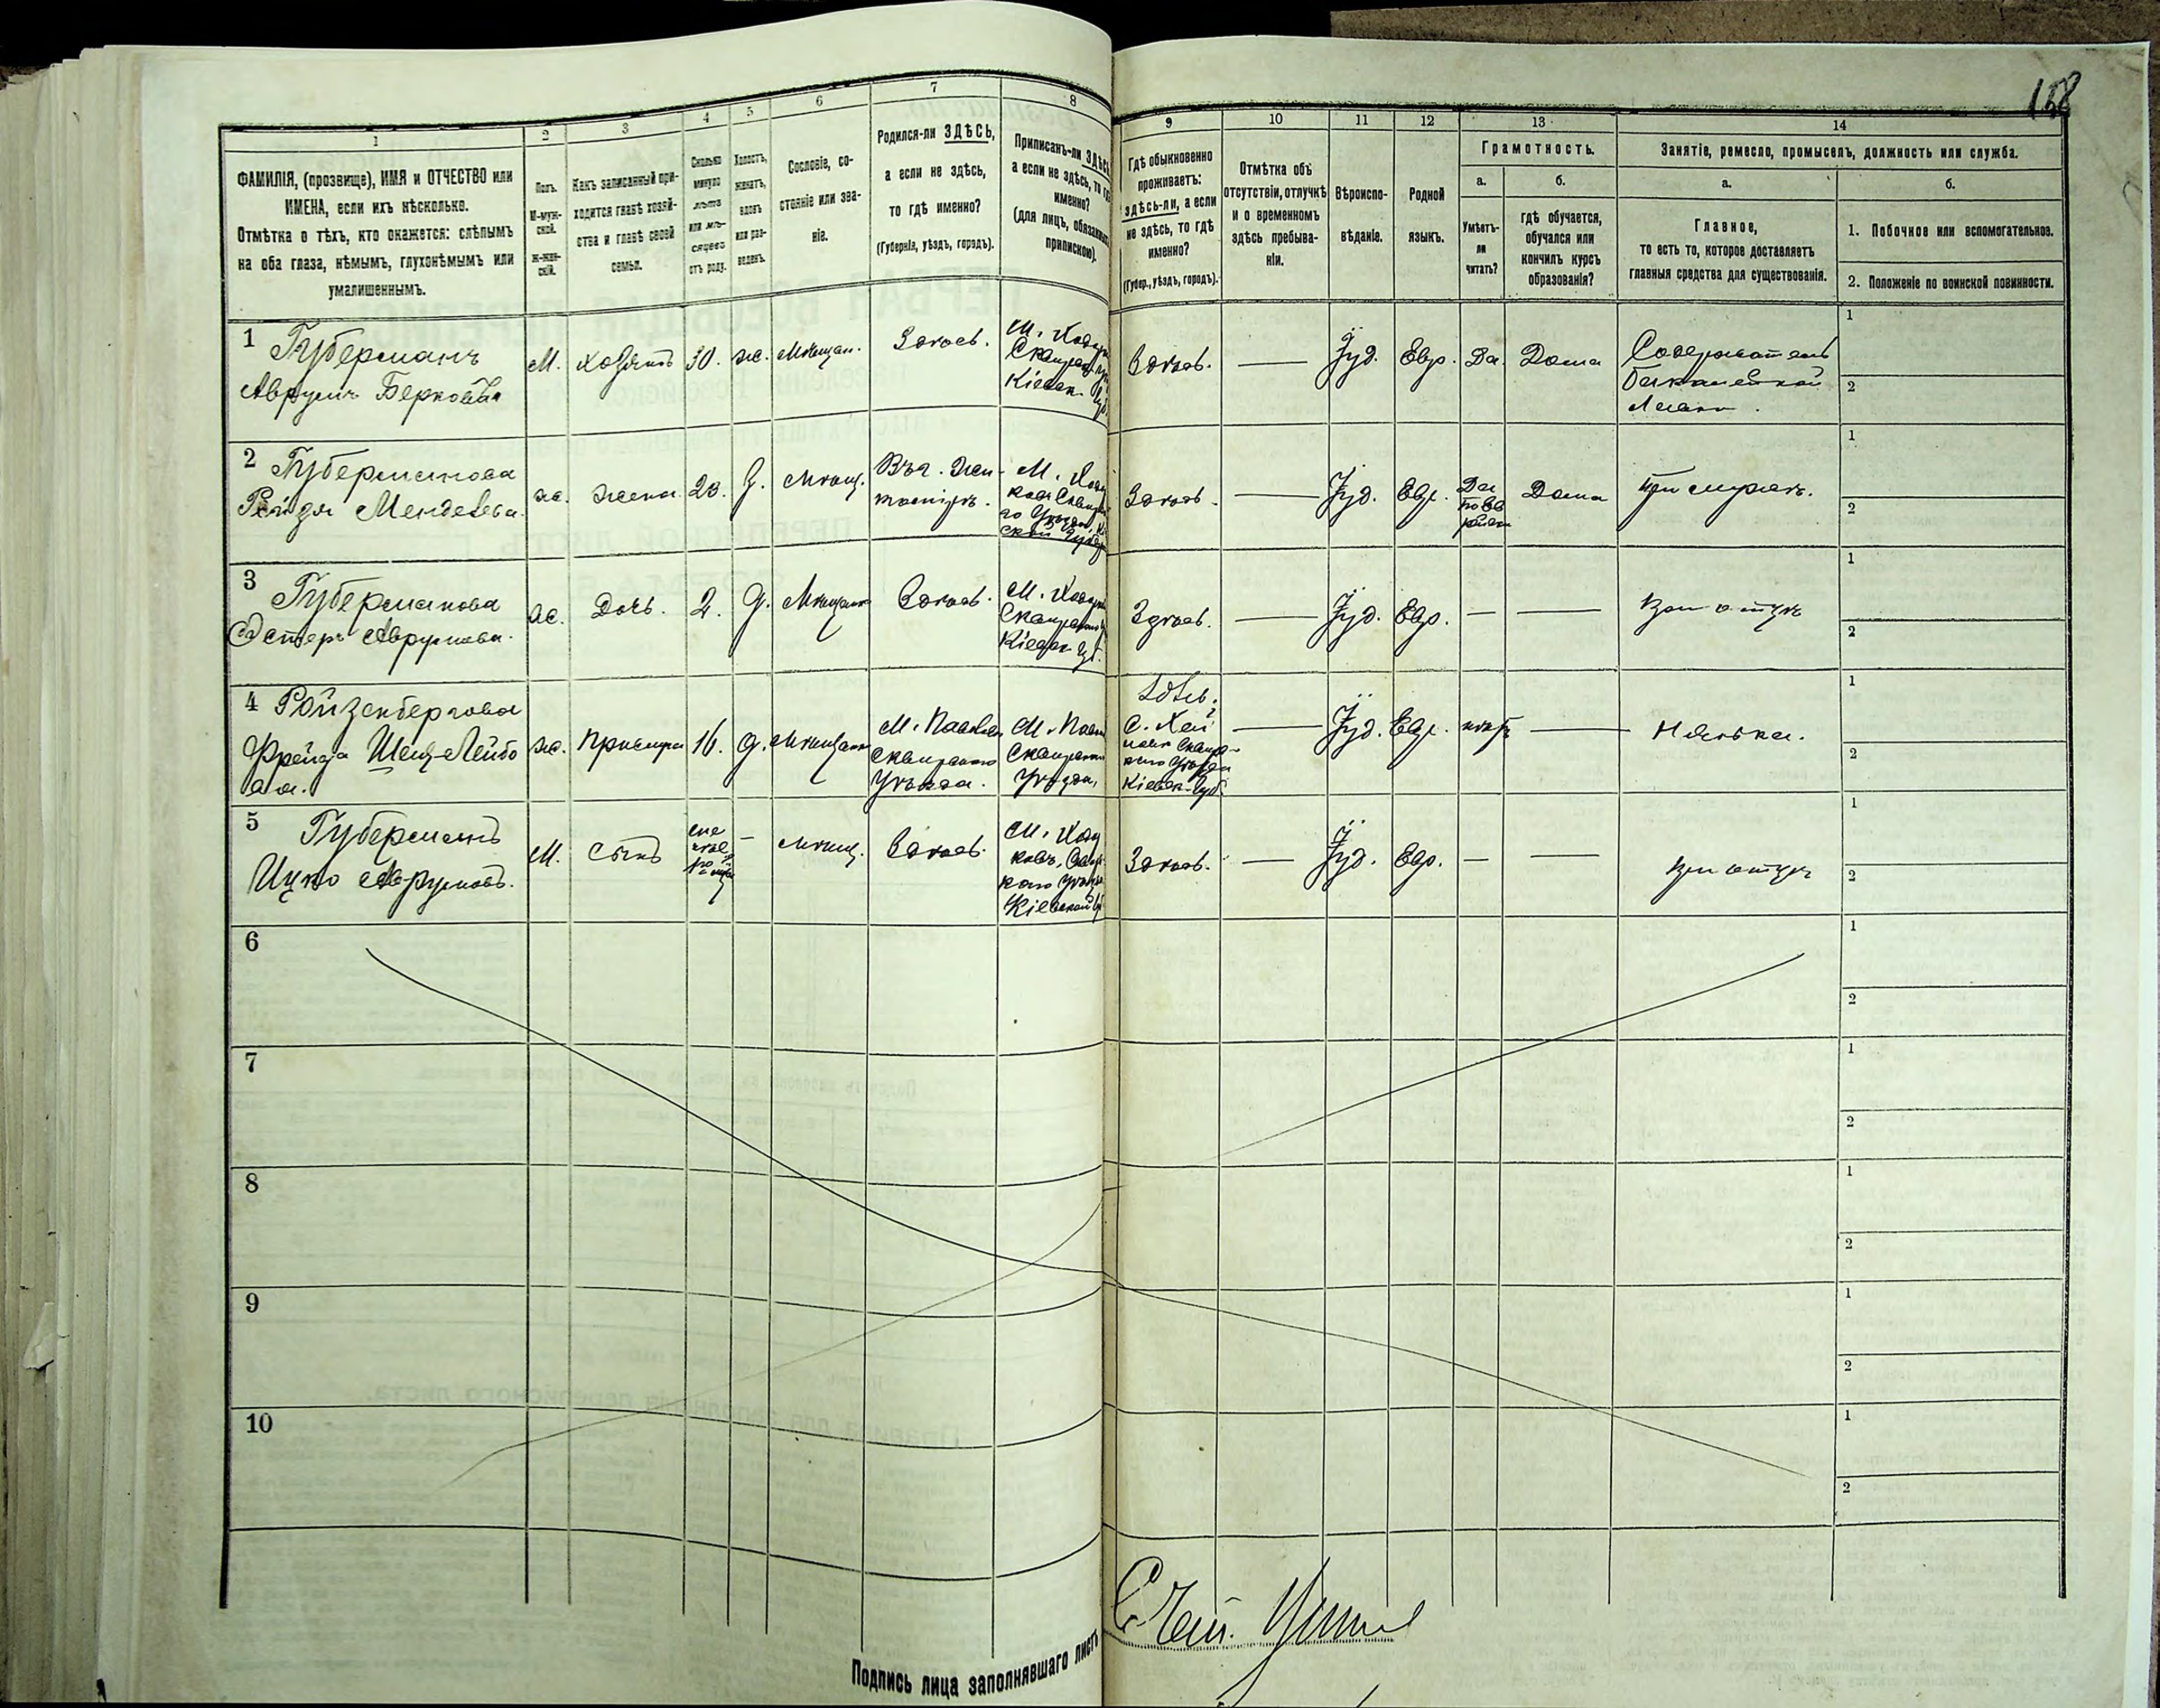 158
1 2 3 4 5 6 7 8 9 10 11 12 13 14
ФАМИЛІЯ, (прозвище), ИМЯ и ОТЧЕСТВО или
ИМЕНА, если ихъ нѣсколько.
Отмѣтка о тѣхъ, кто окажется: слѣпымъ
на оба глаза, нѣмымъ, глухонѣмымъ или
умалишеннымъ.
Полъ.
М-муж-
ской.
Ж-жен-
скій.
Какъ записанный при-
ходится главѣ хозяй-
ства и главѣ своей
семьи.
Сколько
минуло
лѣтъ
или мѣ-
сяцевъ
отъ роду.
Холостъ,
женатъ,
вдовъ
или раз-
веденъ.
Сословіе, со-
стояніе или зва-
ніе.
Родился-ли ЗДѢСЬ,
а если не здѣсь,
то гдѣ именно?
(Губернія, уѣздъ, городъ).
Приписанъ-ли ЗДѢСЬ
а если не здѣсь, то гдѣ
именно?
(для лицъ, обязанныхъ
припискою).
Гдѣ обыкновенно
проживаетъ:
здѣсь-ли, а если
не здѣсь, то гдѣ
именно?
(Губер., уѣздъ, городъ).
Отмѣтка объ
отсутствіи, отлучкѣ
и о временномъ
здѣсь пребыва-
ніи.
Вѣроиспо-
вѣданіе.
Родной
языкъ.
Грамотность.
а.
Умѣетъ-
ли
читать?
б.
гдѣ обучается,
обучался или
кончилъ курсъ
образованія?
Занятіе, ремесло, промыселъ, должность или служба.
а.
Главное,
то есть то, которое доставляетъ
главныя средства для существованія.
б.
1. Побочное или вспомогательное.
2. Положеніе по воинской повинности.
1 Губерманъ
Аврумъ Берковъ
М.
хозяинъ
30.
ж.
Мѣщан.
Здѣсь.
М. Ходорк
Сквирск.
Кіевск. Губ.
Здѣсь.
Іуд.
Евр.
Да.
Дома
Содержатель
бакалейной
лавки.
1
2
2 Губерманова
Рейзя Менделева
ж.
жена
23.
З.
Мѣщ.
Въ г. Жи-
томірѣ.
М. Ходор
Здѣсь.
Іуд.
Евр.
Да
Дома
При мужѣ.
1
2
3 Губерманова
Эстеръ Аврумова.
ж.
Дочь.
2.
д.
Мѣщанк
Здѣсь.
М. Ходорк
Сквирскаго
Кіевск. Губ.
Здѣсь.
Іуд.
Евр.
при отцѣ
1
2
4 Ройзенбергова
Фрейда Шец-Лейбо
ва.
ж.
Прислуга
16.
д.
Мѣщанк
М. Паволоч
Сквирскаго
Уѣзда.
М. Павол
Сквирскаго
Уѣзда,
Здѣсь.
Сквирс-
каго Уѣзда
Кіевск. Губ.
Іуд.
Евр.
нѣтъ
Нянька.
1
2
5 Губерманъ
Ицко Аврумовъ.
М.
Сынъ
Мѣщ.
Здѣсь.
М. Ходор
ковъ, Сквирс
каго Уѣзда
Кіевской Губ
Здѣсь.
Іуд.
Евр.
при отцѣ
1
2
6
1
2
7
1
2
8
1
2
9
1
2
10
1
2
Подпись лица заполнявшаго листъ